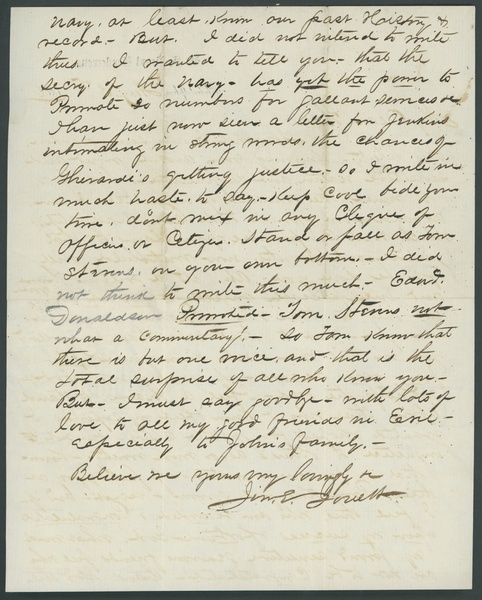 Navy, at least, know our past History &
record. - But. I did not intend to write
thus. I wanted to tell you - that the
Secry. of the Navy - has yet the power to
Promote 20 numbers for gallant services &c
I have just now seen a letter from Jenkins
intimating in strong words, the chances of
Gherardi's getting justice. - So I write in
much haste, to say, - Keep Cool bide your
time, don't mix in any Cleque of
Officers or Citizens. Stand or fall as Tom
Stevens, on your own bottom. - I did
not think to write this much - Edwd.
Donaldson Promoted - Tom. Stevens not -
what a Commentary! - So Tom Know that
there is but one voice, and that is the
total surprise of all who know you. -
But - I must say goodbye - with lots of
love to all my good friends in Erie. -
especially to John's family. -
Believe me yours my &
Jowett